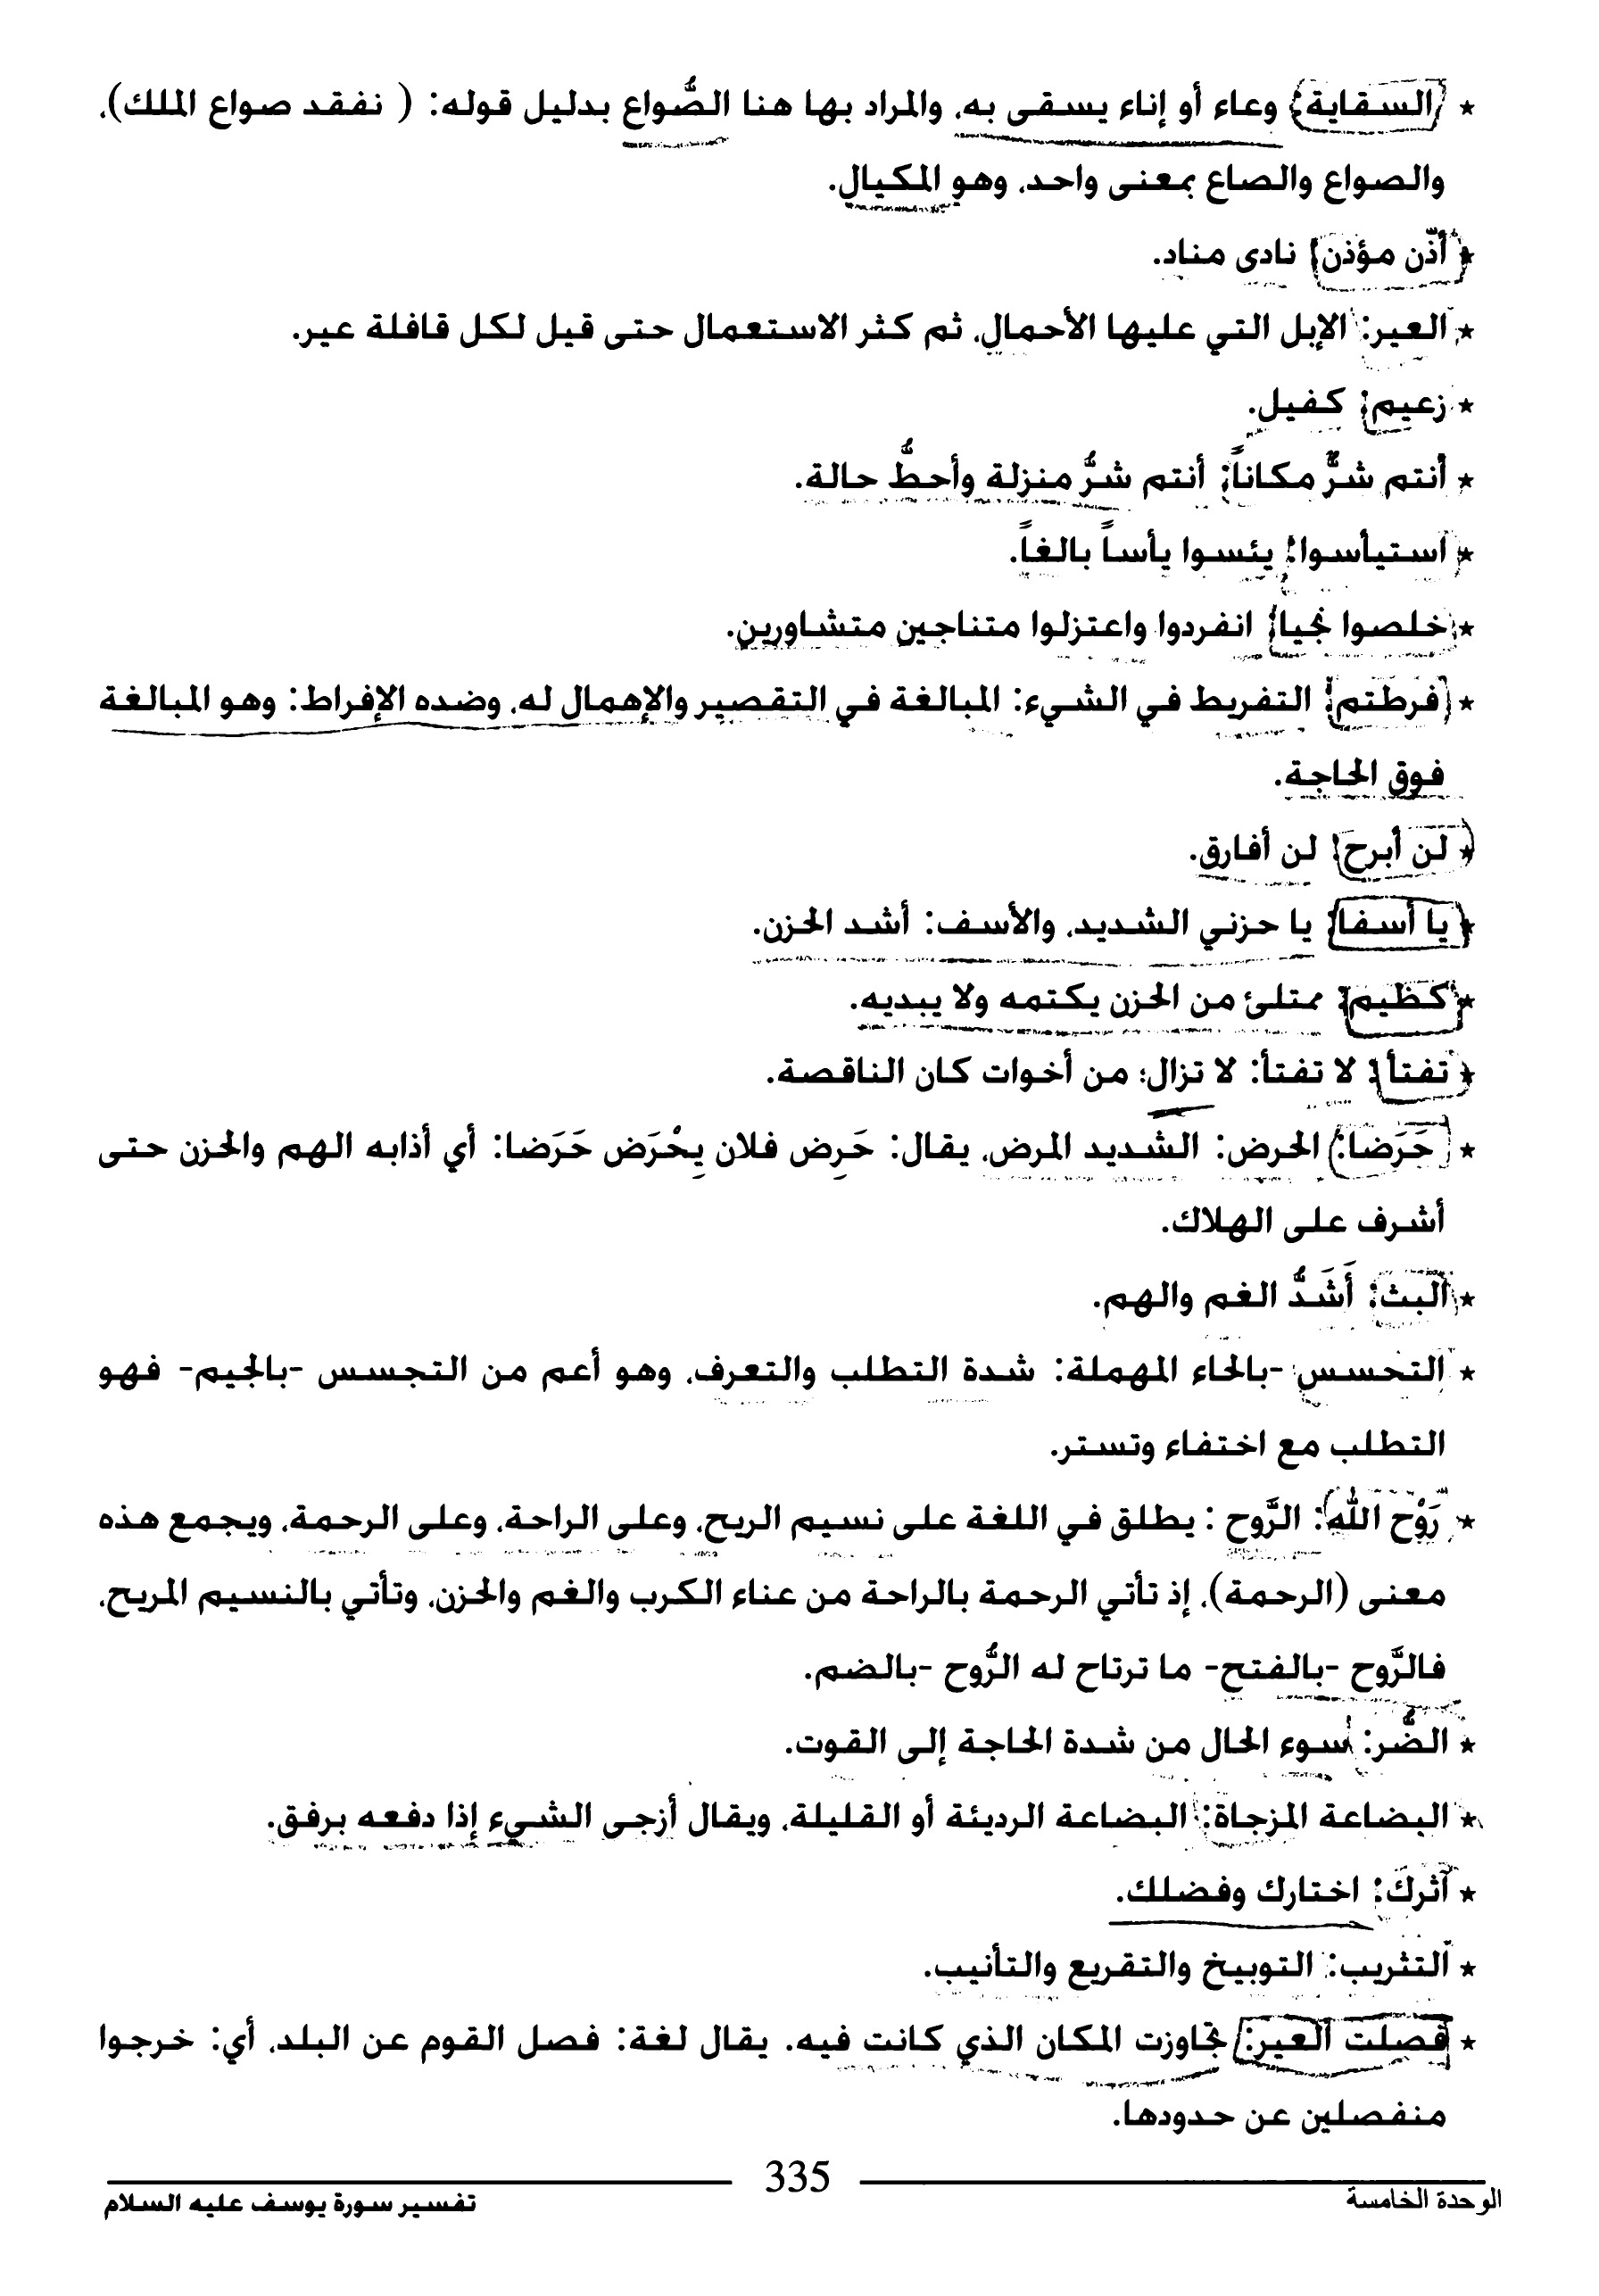 * السقاية: وعاء أو إناء يسقى به، والمراد بها هنا الصُّواع بدليل قوله: ( نفقد صواع الملك)،
والصواع والصاع بمعنى واحد، وهو المكيال.
* أذّن مؤذن: نادى مناد.
* العير: الإبل التي عليها الأحمال، ثم كثر الاستعمال حتى قيل لكل قافلة عير.
* زعيم: كفيل.
* أنتم شرٌّ مكاناً: أنتم شرُّ منزلة وأحطُّ حالة.
* استيأسوا: يئسوا يأساً بالغاً.
* خلصوا نجيا: انفردوا واعتزلوا متناجين متشاورين.
* فرطتم: التفريط في الشيء: المبالغة في التقصير والإهمال له، وضده الإفراط: وهو المبالغة
فوق الحاجة.
* لن أبرح: لن أفارق.
* يا أسفا: يا حزني الشديد، والأسف: أشد الحزن.
* كظيم: ممتلئ من الحزن يكتمه ولا يبديه.
* تفتأ: لا تفتأ: لا تزال؛ من أخوات كان الناقصة.
* حَرَضا: الحرض: الشديد المرض، يقال: حَرِض فلان يحْرَض حَرَضا: أي أذابه الهم والحزن حتى
أشرف على الهلاك.
* البث: أَشَدُّ الغم والهم.
* التحسس -بالحاء المهملة: شدة التطلب والتعرف، وهو أعم من التجسس -بالجيم- فهو
التطلب مع اختفاء وتستر.
* رَوْح الله: الرَّوح : يطلق في اللغة على نسيم الريح، وعلى الراحة، وعلى الرحمة، ويجمع هذه
معنى (الرحمة)، إذ تأتي الرحمة بالراحة من عناء الكرب والغم والحزن، وتأتي بالنسيم المريح،
فالرَّوح -بالفتح- ما ترتاح له الرُّوح -بالضم.
* الضُّر: سوء الحال من شدة الحاجة إلى القوت.
* البضاعة المزجاة: البضاعة الرديئة أو القليلة، ويقال أزجى الشيء إذا دفعه برفق.
* آثرك: اختارك وفضلك.
* التثريب: التوبيخ والتقريع والتأنيب.
* فصلت العير: تجاوزت المكان الذي كانت فيه. يقال لغة: فصل القوم عن البلد، أي: خرجوا
منفصلين عن حدودها.
335
الوحدة الخامسة
تفسير سورة يوسف عليه السلام